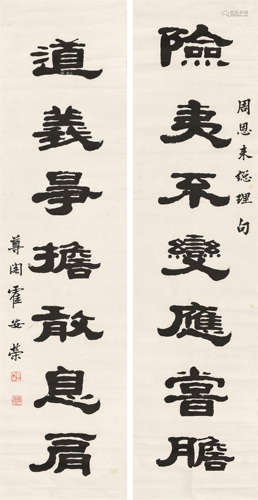 周恩来總理句
險夷不變應嘗膽
道義爭擔敢息肩
霍安榮